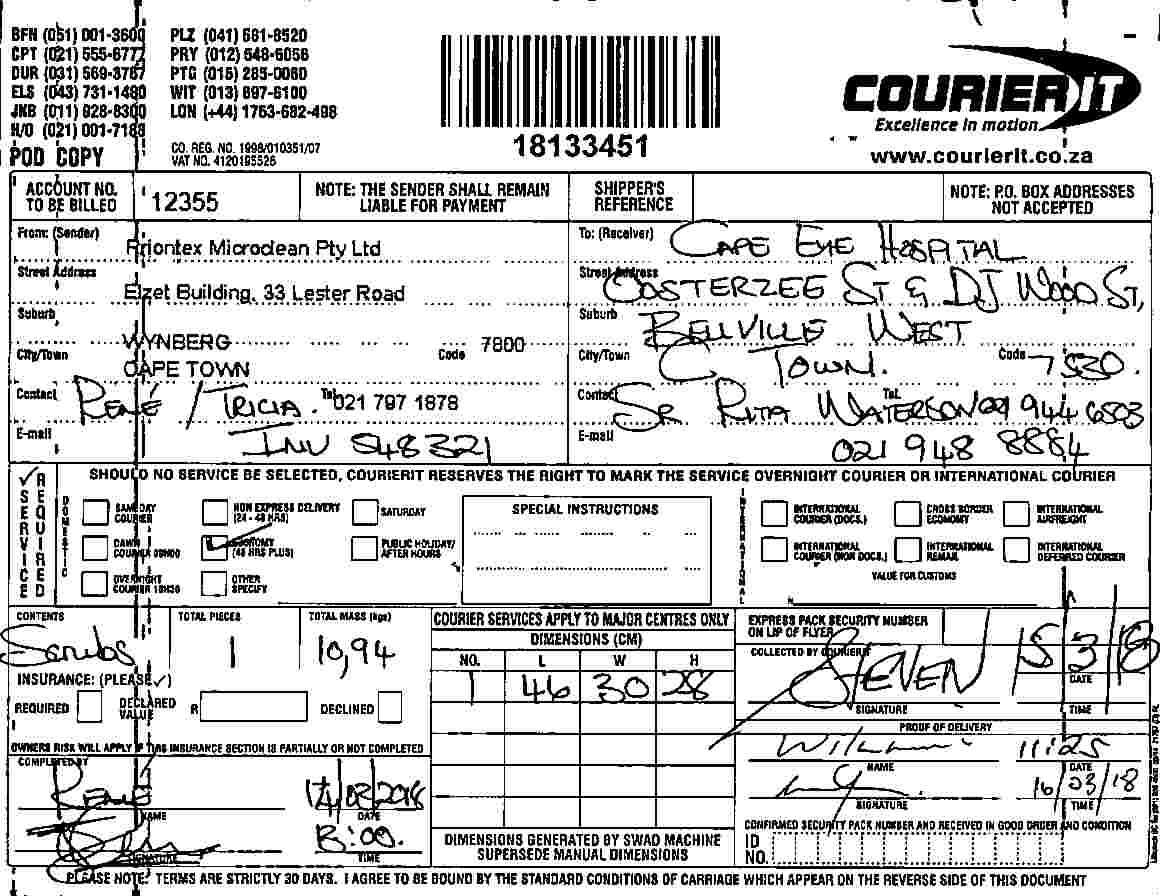 BFN (051) 001-3600 PLZ (041) 581-8520
CPT (021) 555-6777 PRY (012) 548-6056
DUR (031) 569-3787 PTG (015) 285-0060
ELS (043) 731-1480 WIT (013) 697-6100
JNB (011) 928-8300 LON (+44) 1753-682-498
H/O (021) 001-7188
POD COPY
CO. REG. NO. 1998/010351/07
VAT NO. 4120195526
18133451
COURIERIT
Excellence in motion
www.courierit.co.za
ACCOUNT NO. TO BE BILLED 12355
NOTE: THE SENDER SHALL REMAIN LIABLE FOR PAYMENT
SHIPPER'S REFERENCE
NOTE: P.O. BOX ADDRESSES NOT ACCEPTED
From: (Sender) Priontex Microclean Pty Ltd
Street Address Elzet Building, 33 Lester Road
Suburb WYNBERG
City/Town CAPE TOWN Code 7800
Contact René / Tricia. Tel. 021 797 1878
E-mail INV 548321
To: (Receiver) CAPE EYE HOSPITAL
Street Address OOSTERZEE ST & DJ WOOD ST,
Suburb BELLVILLE WEST
City/Town C TOWN. Code 7530.
Contact SR RITA WATERSON Tel. 021 944 6503
E-mail 021 948 8884
SHOULD NO SERVICE BE SELECTED, COURIERIT RESERVES THE RIGHT TO MARK THE SERVICE OVERNIGHT COURIER OR INTERNATIONAL COURIER
✓ SERVICE REQUIRED
DOMESTIC
SAME DAY COURIER
NON EXPRESS DELIVERY (24 - 48 HRS)
SATURDAY
DAWN COURIER 09H00
ECONOMY (48 HRS PLUS)
PUBLIC HOLIDAY/ AFTER HOURS
OVERNIGHT COURIER 10H30
OTHER SPECIFY
SPECIAL INSTRUCTIONS
INTERNATIONAL
INTERNATIONAL COURIER (DOCS.)
CROSS BORDER ECONOMY
INTERNATIONAL AIRFREIGHT
INTERNATIONAL COURIER (NON DOCS.)
INTERNATIONAL REMAIL
INTERNATIONAL DEFERRED COURIER
VALUE FOR CUSTOMS
CONTENTS Scrubs
TOTAL PIECES 1
TOTAL MASS (kgs) 10,94
INSURANCE: (PLEASE ✓)
REQUIRED DECLARED VALUE R DECLINED
OWNERS RISK WILL APPLY IF THIS INSURANCE SECTION IS PARTIALLY OR NOT COMPLETED
COURIER SERVICES APPLY TO MAJOR CENTRES ONLY
DIMENSIONS (CM)
NO. L W H
1 46 30 28
DIMENSIONS GENERATED BY SWAD MACHINE SUPERSEDE MANUAL DIMENSIONS
EXPRESS PACK SECURITY NUMBER ON LIP OF FLYER
COLLECTED BY COURIERIT
STEVEN 15/3/18
SIGNATURE DATE
TIME
PROOF OF DELIVERY
11:25
NAME DATE
16/03/18
SIGNATURE TIME
CONFIRMED SECURITY PACK NUMBER AND RECEIVED IN GOOD ORDER AND CONDITION
ID NO.
COMPLETED BY
René
NAME DATE
SIGNATURE TIME
PLEASE NOTE: TERMS ARE STRICTLY 30 DAYS. I AGREE TO BE BOUND BY THE STANDARD CONDITIONS OF CARRIAGE WHICH APPEAR ON THE REVERSE SIDE OF THIS DOCUMENT